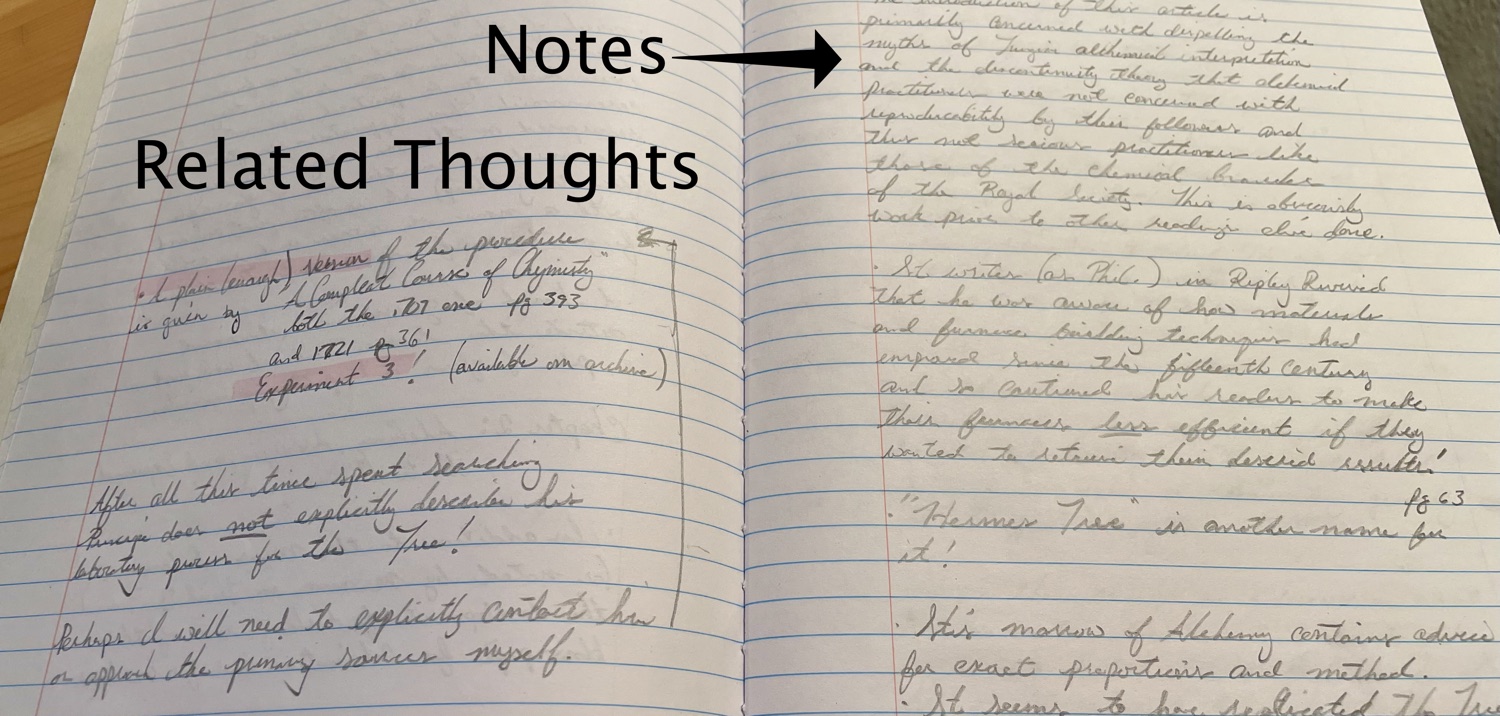 Notes
Related Thoughts
• A plain (enough) version of the procedure
is given by "A Compleat Course of Chymistry"
both the 1707 one pg 393
and 1721 pg 361
Experiment 3! (available on archive)
After all this time spent searching
Principe does not explicitly describe his
laboratory process for the Tree!
Perhaps I will need to explicitly contact him
or approach the primary sources myself.
introduction of this article is
primarily concerned with dispelling the
myths of Jungian alchemical interpretation
and the discontinuity theory that alchemical
practitioners were not concerned with
reproducability by their followers and
thus not serious practitioners like
those of the chemical branches
of the Royal Society. This is obviously
work prior to other readings I've done.
• St. writes (as Phil.) in Ripley Revived
that he was aware of how materials
and furnace building techniques had
improved since the fifteenth century
and so cautioned his readers to make
their furnaces less efficient if they
wanted to retrieve their desired results!
pg 63
• "Hermes Tree" is another name for
it!
• St's marrow of Alchemy contains advice
for exact proportions and method.
• St. seems to have replicated the Tree